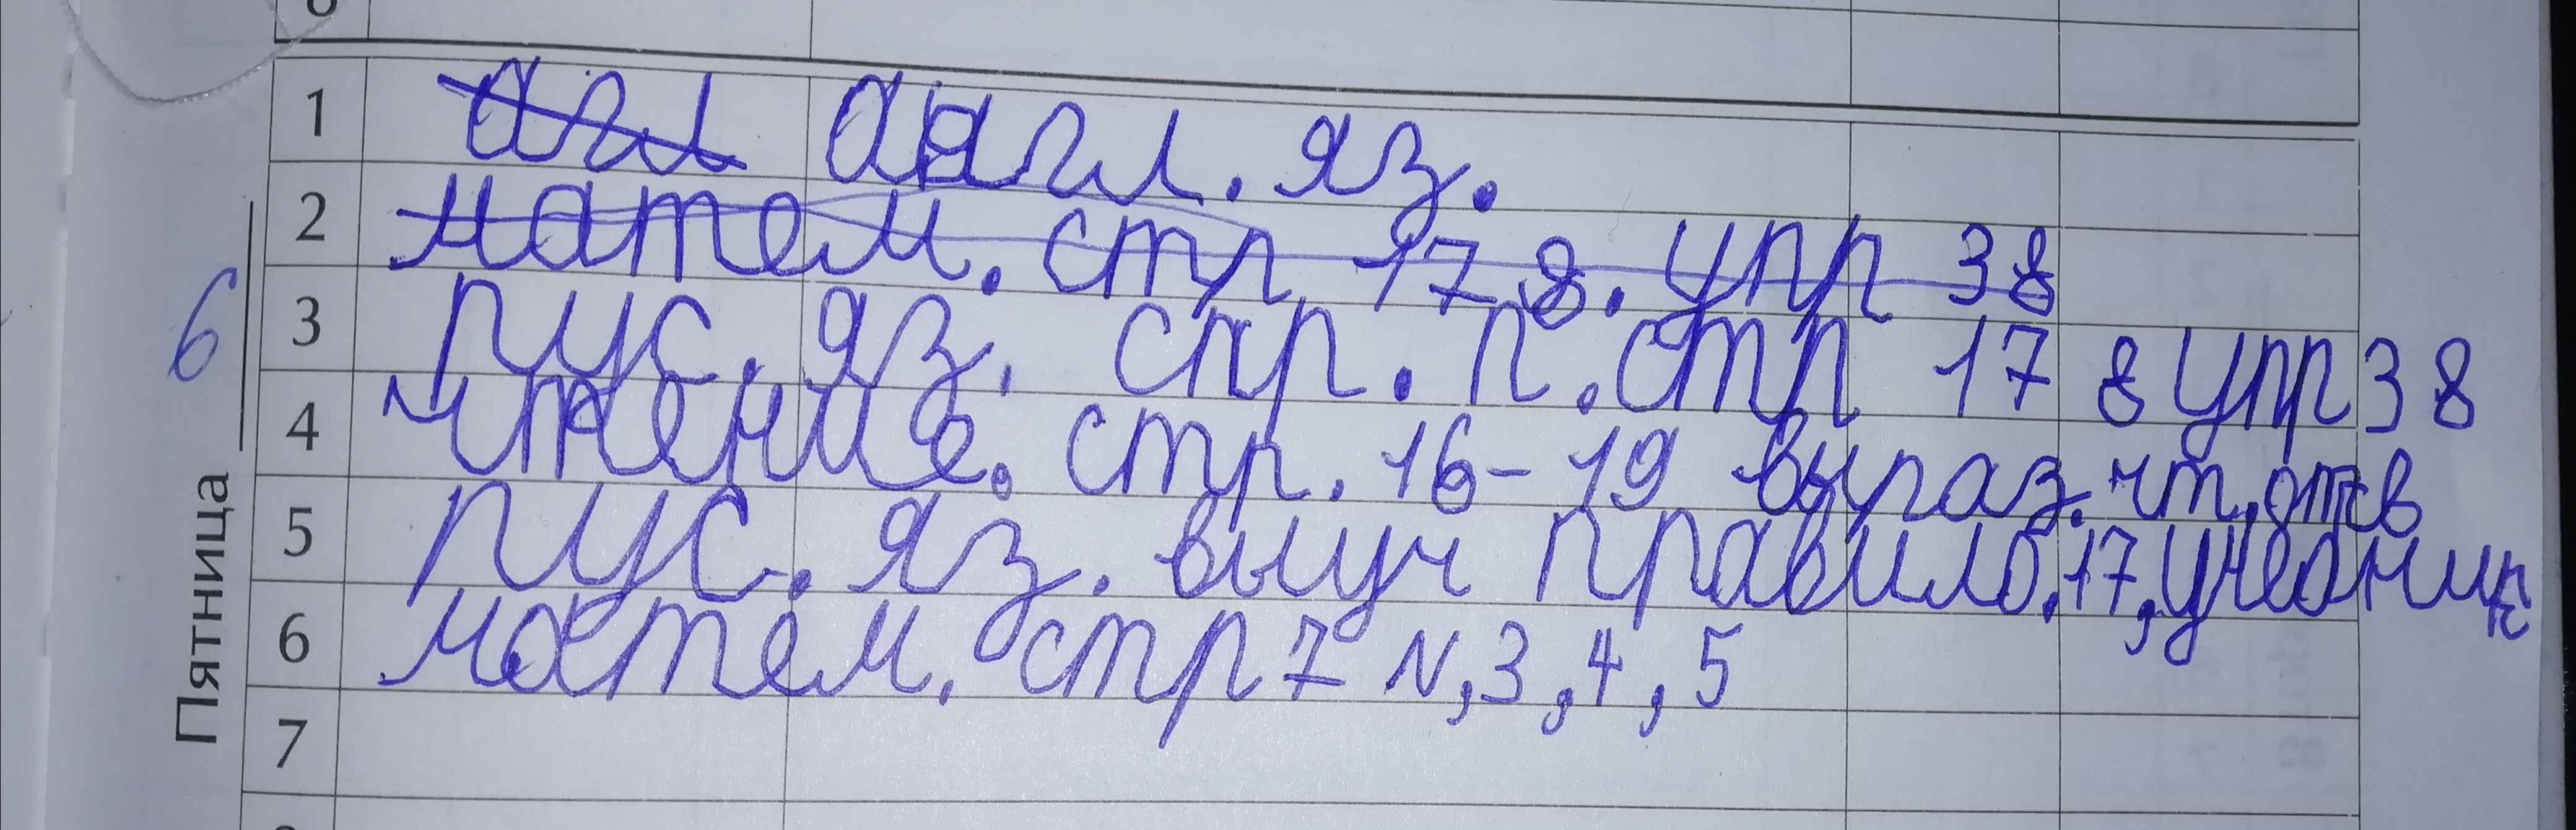 1 агл англ. яз.
2 матем. стр 17 8. упр 38
3 рус. яз. спр. п. стр 17 8 упр 38
4 чтение. стр. 16-19 выраз. чт. отв
5 рус. яз. выуч правило. 17, учебник
6 матем. стр 7 N, 3, 4, 5
7
Пятница 6